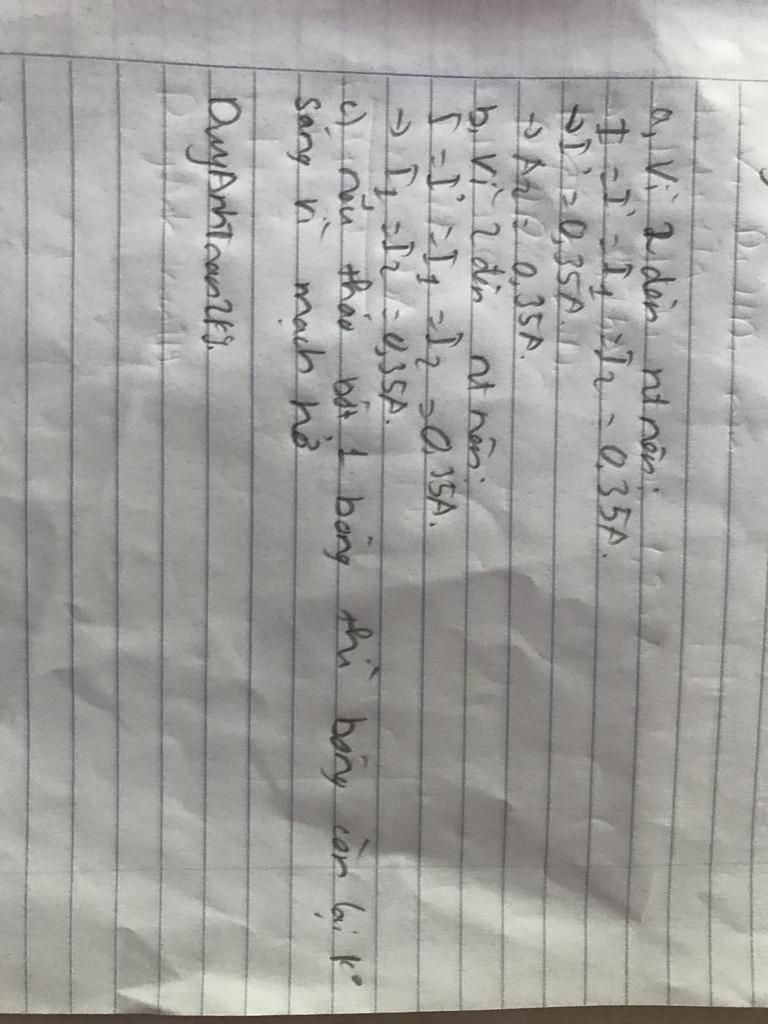 a, Vì 2 đèn nt nên:
I = I' = I1 = I2 = 0,35A.
→ I' = 0,35A.
→ A2 = 0,35A.
b, Vì 2 đèn nt nên:
I = I' = I1 = I2 = 0,35A.
→ I1 = I2 = 0,35A.
c) nếu tháo bớt 1 bóng thì bóng còn lại ko
sáng vì mạch hở